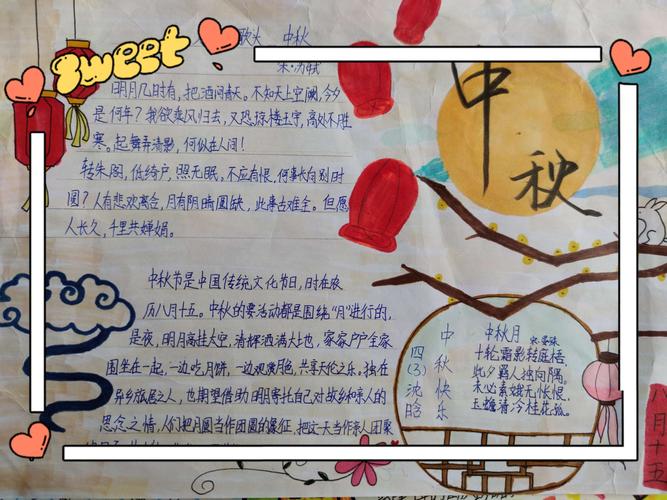 sweet
歌头 中秋
宋·苏轼
明月几时有，把酒问青天。不知天上宫阙，今夕
是何年？我欲乘风归去，又恐琼楼玉宇，高处不胜
寒。起舞弄清影，何似在人间！
转朱阁，低绮户，照无眠。不应有恨，何事长向别时
圆？人有悲欢离合，月有阴晴圆缺，此事古难全。但愿
人长久，千里共婵娟。
中秋节是中国传统文化节日，时在农
历八月十五。中秋的要活动都是围绕"月"进行的，
是夜，明月高挂太空，清辉洒满大地，家家户户全家
围坐在一起，一边吃月饼，一边观赏月色，共享天伦之乐。独在
异乡旅居之人，也期望借助明月寄托自己对故乡和亲人的
思念之情，人们把月圆当作团圆的象征，把这天当作亲人团聚
中秋
中秋快乐
四(3)沈晗
中秋月
宋·晏殊
十轮霜影转庭梧，
此夕羁人独向隅。
未必素娥无怅恨，
玉蟾清冷桂花孤。
八月十五